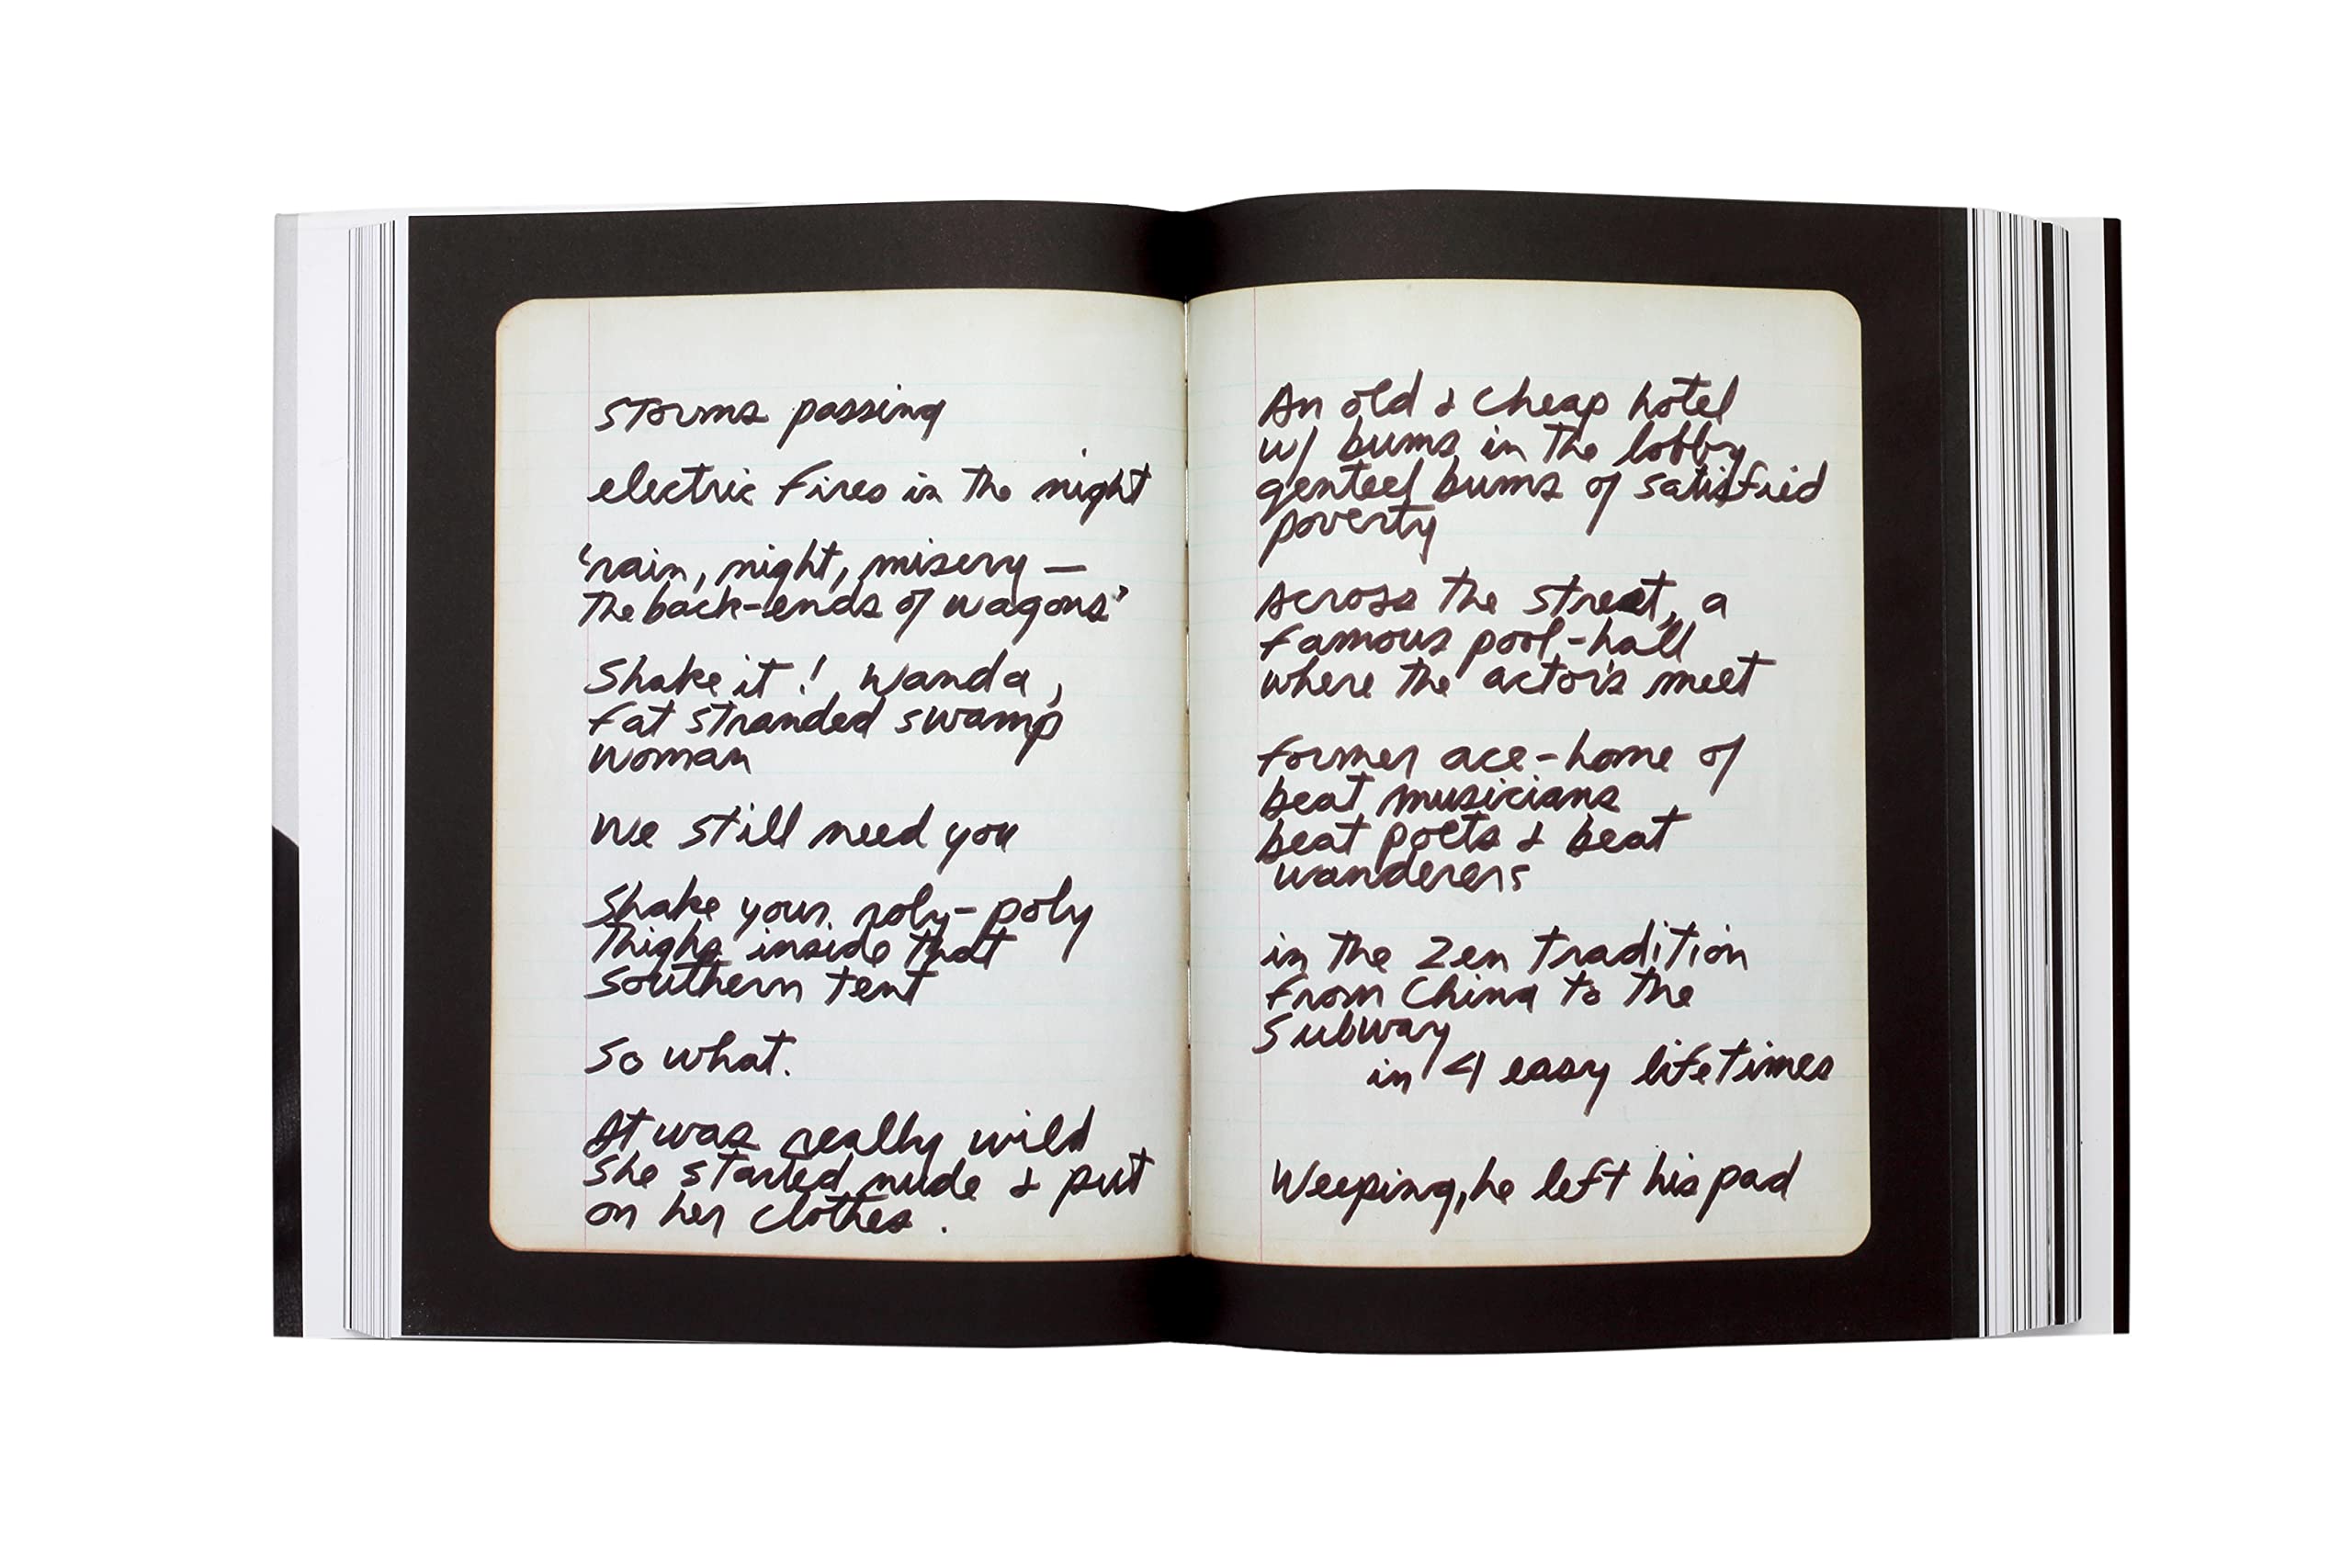 storms passing
electric fires in the night
'rain, night, misery —
the back-ends of wagons'
Shake it! Wanda,
fat stranded swamp
woman
We still need you
Shake your roly-poly
Thighs inside that
Southern tent
So what.
It was really wild
She started nude & put
on her clothes.
An old & cheap hotel
w/ bums in the lobby
genteel bums of satisfied
poverty
Across the street, a
famous pool-hall
where the actors meet
former ace-home of
beat musicians
beat poets & beat
wanderers
in the Zen tradition
from China to the
Subway
in 4 easy lifetimes
Weeping, he left his pad